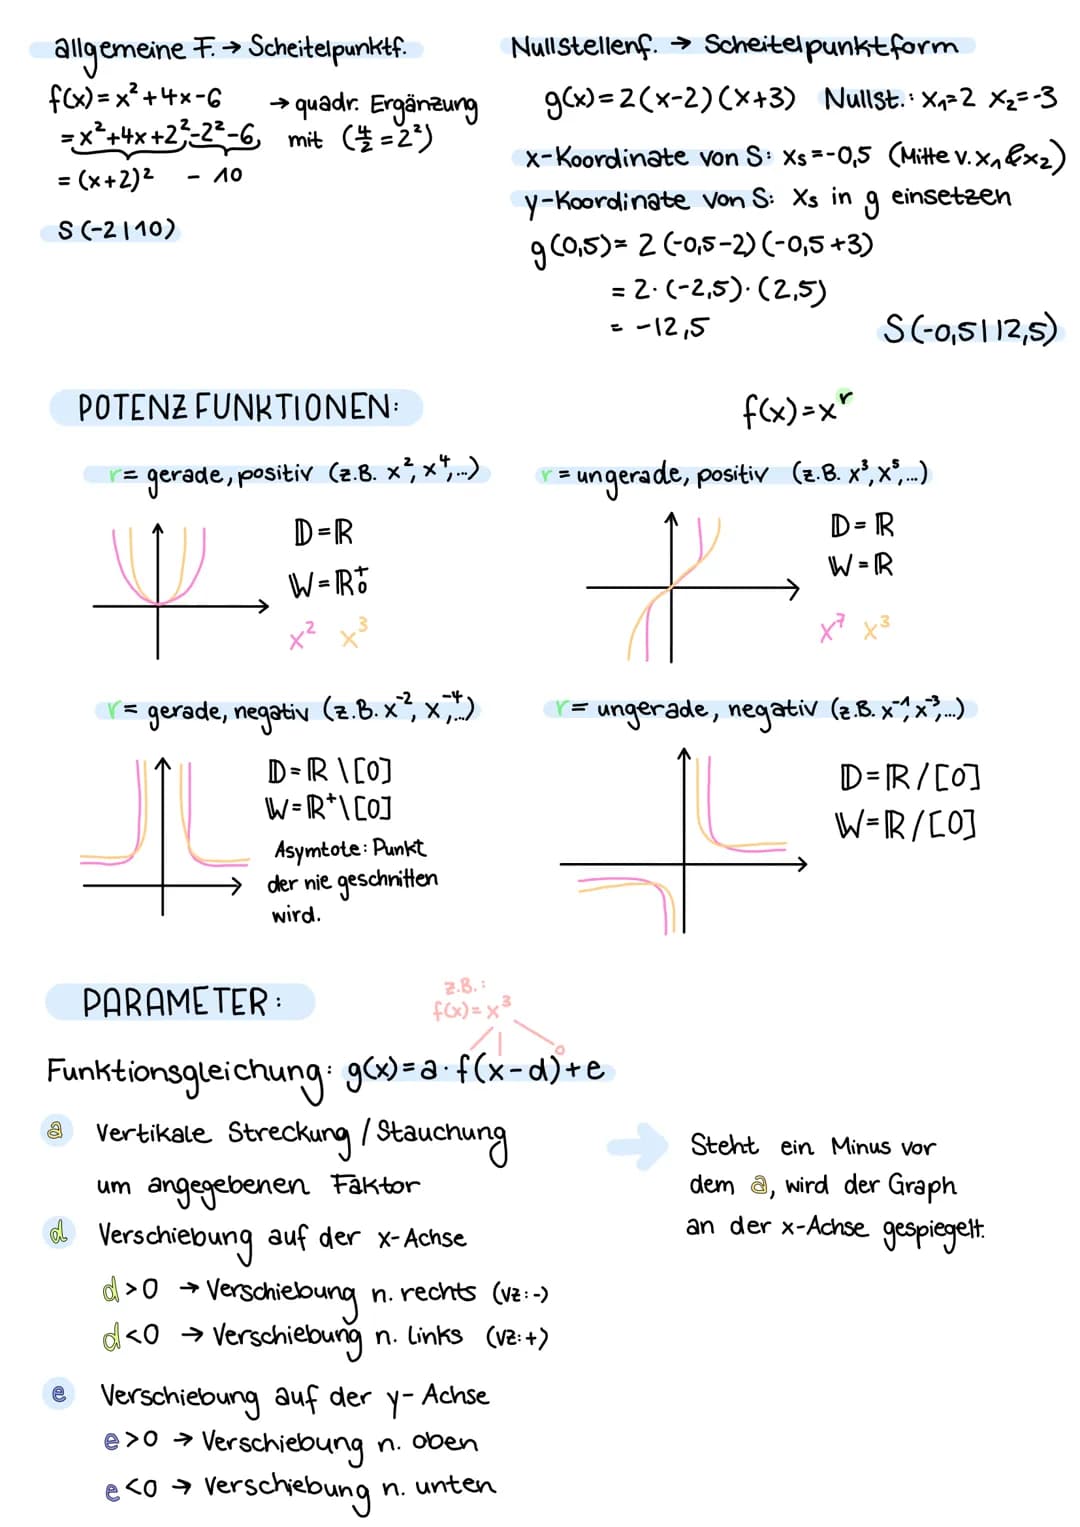 allgemeine F. → Scheitelpunktf.
f(x) = x² + 4x - 6 → quadr. Ergänzung
= x² + 4x + 2² - 2² - 6 mit (4/2 = 2²)
= (x+2)² - 10
S (-2 | 10)
Nullstellenf. → Scheitelpunktform
g(x) = 2(x-2)(x+3) Nullst.: x₁=2 x₂=-3
x-Koordinate von S: xs = -0,5 (Mitte v. x₁ & x₂)
y-Koordinate von S: xs in g einsetzen
g(0,5) = 2(-0,5-2)(-0,5+3)
= 2·(-2,5)·(2,5)
= -12,5
S(-0,5 | 12,5)
POTENZFUNKTIONEN:
f(x) = xʳ
r = gerade, positiv (z.B. x², x⁴,...)
D = ℝ
W = ℝ₀⁺
x² x³
r = ungerade, positiv (z.B. x³, x⁵,...)
D = ℝ
W = ℝ
x⁷ x³
r = gerade, negativ (z.B. x⁻², x⁻⁴,...)
D = ℝ \ [0]
W = ℝ⁺ \ [0]
Asymtote: Punkt
der nie geschnitten
wird.
r = ungerade, negativ (z.B. x⁻¹, x⁻³,...)
D = ℝ / [0]
W = ℝ / [0]
PARAMETER:
z.B.:
f(x) = x³
0
Funktionsgleichung: g(x) = a · f(x-d) + e
a Vertikale Streckung / Stauchung
um angegebenen Faktor
d Verschiebung auf der x-Achse
d > 0 → Verschiebung n. rechts (VZ: -)
d < 0 → Verschiebung n. links (VZ: +)
e Verschiebung auf der y-Achse
e > 0 → Verschiebung n. oben
e < 0 → Verschiebung n. unten
Steht ein Minus vor
dem a, wird der Graph
an der x-Achse gespiegelt.